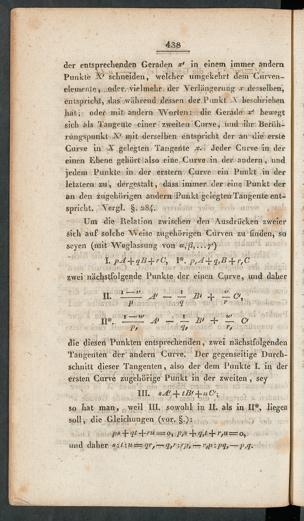 438
der entsprechenden Geraden x' in einem immer andern
Punkte X' schneiden, welcher umgekehrt dem Curven-
elemente, oder vielmehr der Verlängerung x desselben,
entspricht, das während dessen der Punkt X beschrieben
hat; oder mit andern Worten: die Gerade x' bewegt
sich als Tangente einer zweiten Curve, und ihr Berüh-
rungspunkt X' mit derselben entspricht der an die erste
Curve in X gelegten Tangente x. Jeder Curve in der
einen Ebene gehört also eine Curve in der andern, und
jedem Punkte in der erstern Curve ein Punkt in der
letztern zu, dergestalt, dass immer der eine Punkt der
an den zugehörigen andern Punkt gelegten Tangente ent-
spricht. Vergl. §.
Um die Relation zwischen den Ausdrücken zweier
sich auf solche Weise zugehörigen Curven zu finden, so
seyen (mit Weglassung von α, β, ... γ')
I. pA+qB+rC, I*. p,A+q,B+r,C
zwei nächstfolgende Punkte der einen Curve, und daher
II. A' — B' + C,
II*. A' — B' + C,
die diesen Punkten entsprechenden, zwei nächstfolgenden
Tangenten der andern Curve. Der gegenseitige Durch-
schnitt dieser Tangenten, also der dem Punkte I. in der
ersten Curve zugehörige Punkt in der zweiten, sey
III. sA'+tB'+uC';
so hat man, weil III. sowohl in II. als in II*. liegen
soll, die Gleichungen (vor. §.):
ps+qt+ru=0, p,s+q,t+r,u=0,
und daher s:t:u=qr,—q,r:rp,—r,p:pq,—p,q.